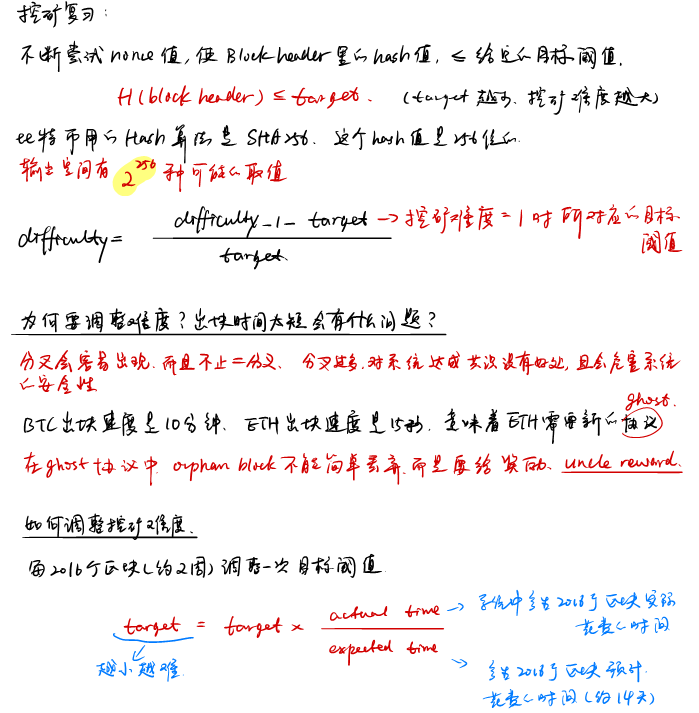 挖矿复习：
不断尝试 nonce 值，使 Block header 里的 hash 值，≤ 给定的目标阈值．
H(block header) ≤ target． (target 越小，挖矿难度越大)
比特币用的 Hash 算法是 SHA256．这个 hash 值是 256 位的．
输出空间有 2^256 种可能的取值
difficulty = difficulty_1_target / target． → 挖矿难度=1时所对应的目标阈值
为何要调整难度？出块时间太短会有什么问题？
分叉会容易出现，而且不止二分叉、分叉过多，对系统达成共识没有好处，且会危害系统
的安全性
BTC 出块速度是10分钟、ETH 出块速度是15秒，意味着 ETH 需要新的协议 ghost．
在 ghost 协议中，orphan block 不能简单丢弃，而是要给奖励，uncle reward．
如何调整挖矿难度．
每2016个区块(约2周)调整一次目标阈值
target = target × actual time / expected time
越小越难
→ 系统中产生2016个区块实际
花费的时间
→ 产生2016个区块预计
花费的时间(约14天)